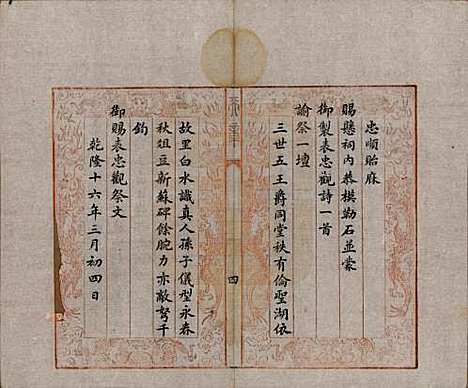 忠順貽庥
賜懸祠內恭模勒石並蒙
御製表忠觀詩一首
諭祭一壇
三世五王爵同堂秩有倫聖湖依
天章
四
故里白水識真人孫子儀型永春
秋俎豆新蘇碑餘腕力亦敵弩千
鈞
御賜表忠觀祭文
乾隆十六年三月初四日